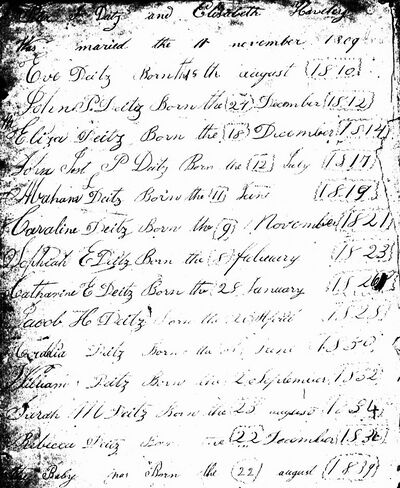 Deitz and Elisabeth
Was maried the 11 november 1809
Eve Deitz Born the 15th august (1810)
John P Deitz Born the (27) December (1812)
Eliza Deitz Born the (18) December (1814)
John Jost P Deitz Born the (12) July (1817)
Abraham Deitz Born the (11) June (1819)
Caraline Deitz Born the (9) November (1821)
Sophiah E Deitz Born the (8) february (1823)
Catharine E Deitz Born the 28 January (1826)
Jacob H Deitz Born the (1828)
Deitz Born the June (1830)
William Deitz Born the September 1832
Sarah M Deitz Born the 25 august 1834
Rebecca Deitz Born the (22) December (1836)
Baby was Born the (22) august (1839)